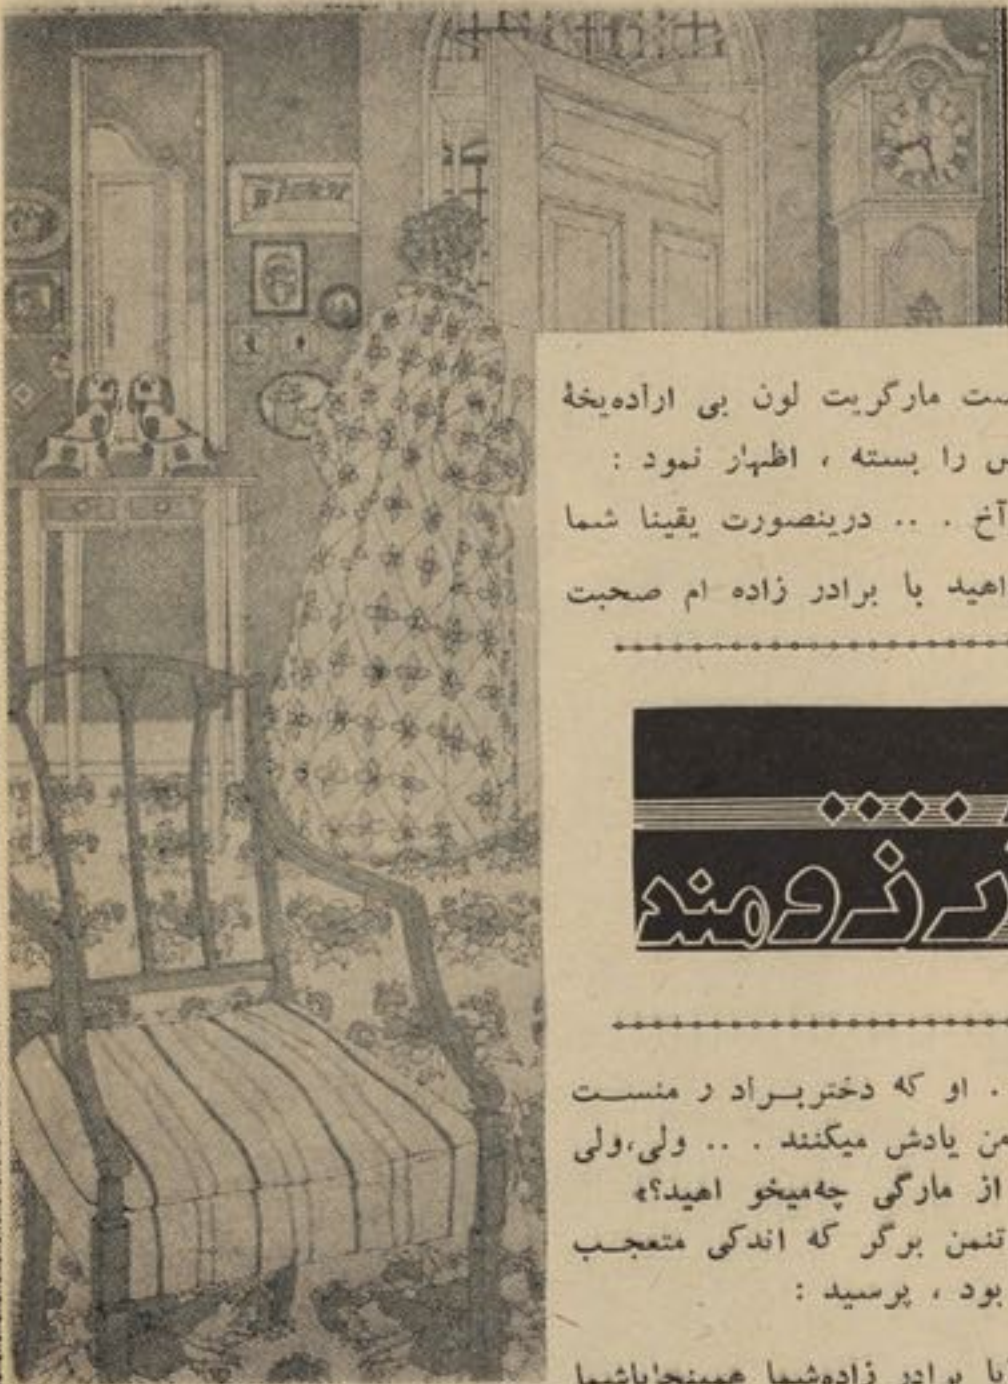 ست مارگریت لون بی اراده‌یخهٔ
س را بسته ، اظهار نمود :
آخ . .. درینصورت یقینا شما
اهید با برادر زاده ام صحبت
رزومند
. او که دختربــراد ر منســت
من یادش میکنند . .. ولی،ولی
از مارگی چه‌میخو اهید؟»
تنمن برگر که اندکی متعجـب
بود ، پرسید :
با برادر زاده‌شما همینجا‌باشما